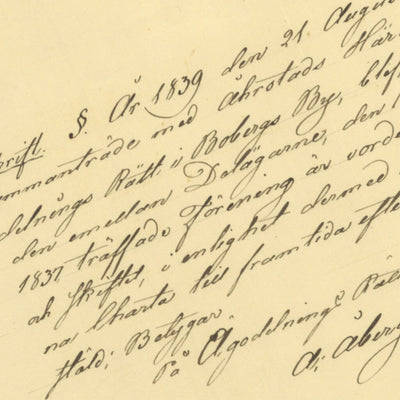 §. År 1839 den 21 Augu
rift. mmanträde med Åkerstads Här
delnings Rätt i Bobergs By, blef
den emellan Delägarne, den
1837 träffade Förening är vorde
och skiftet, i enlighet dermed
na Charta till framtida efte
stäld; Betygar
På Ägodelnings Rätt
A; Åberg